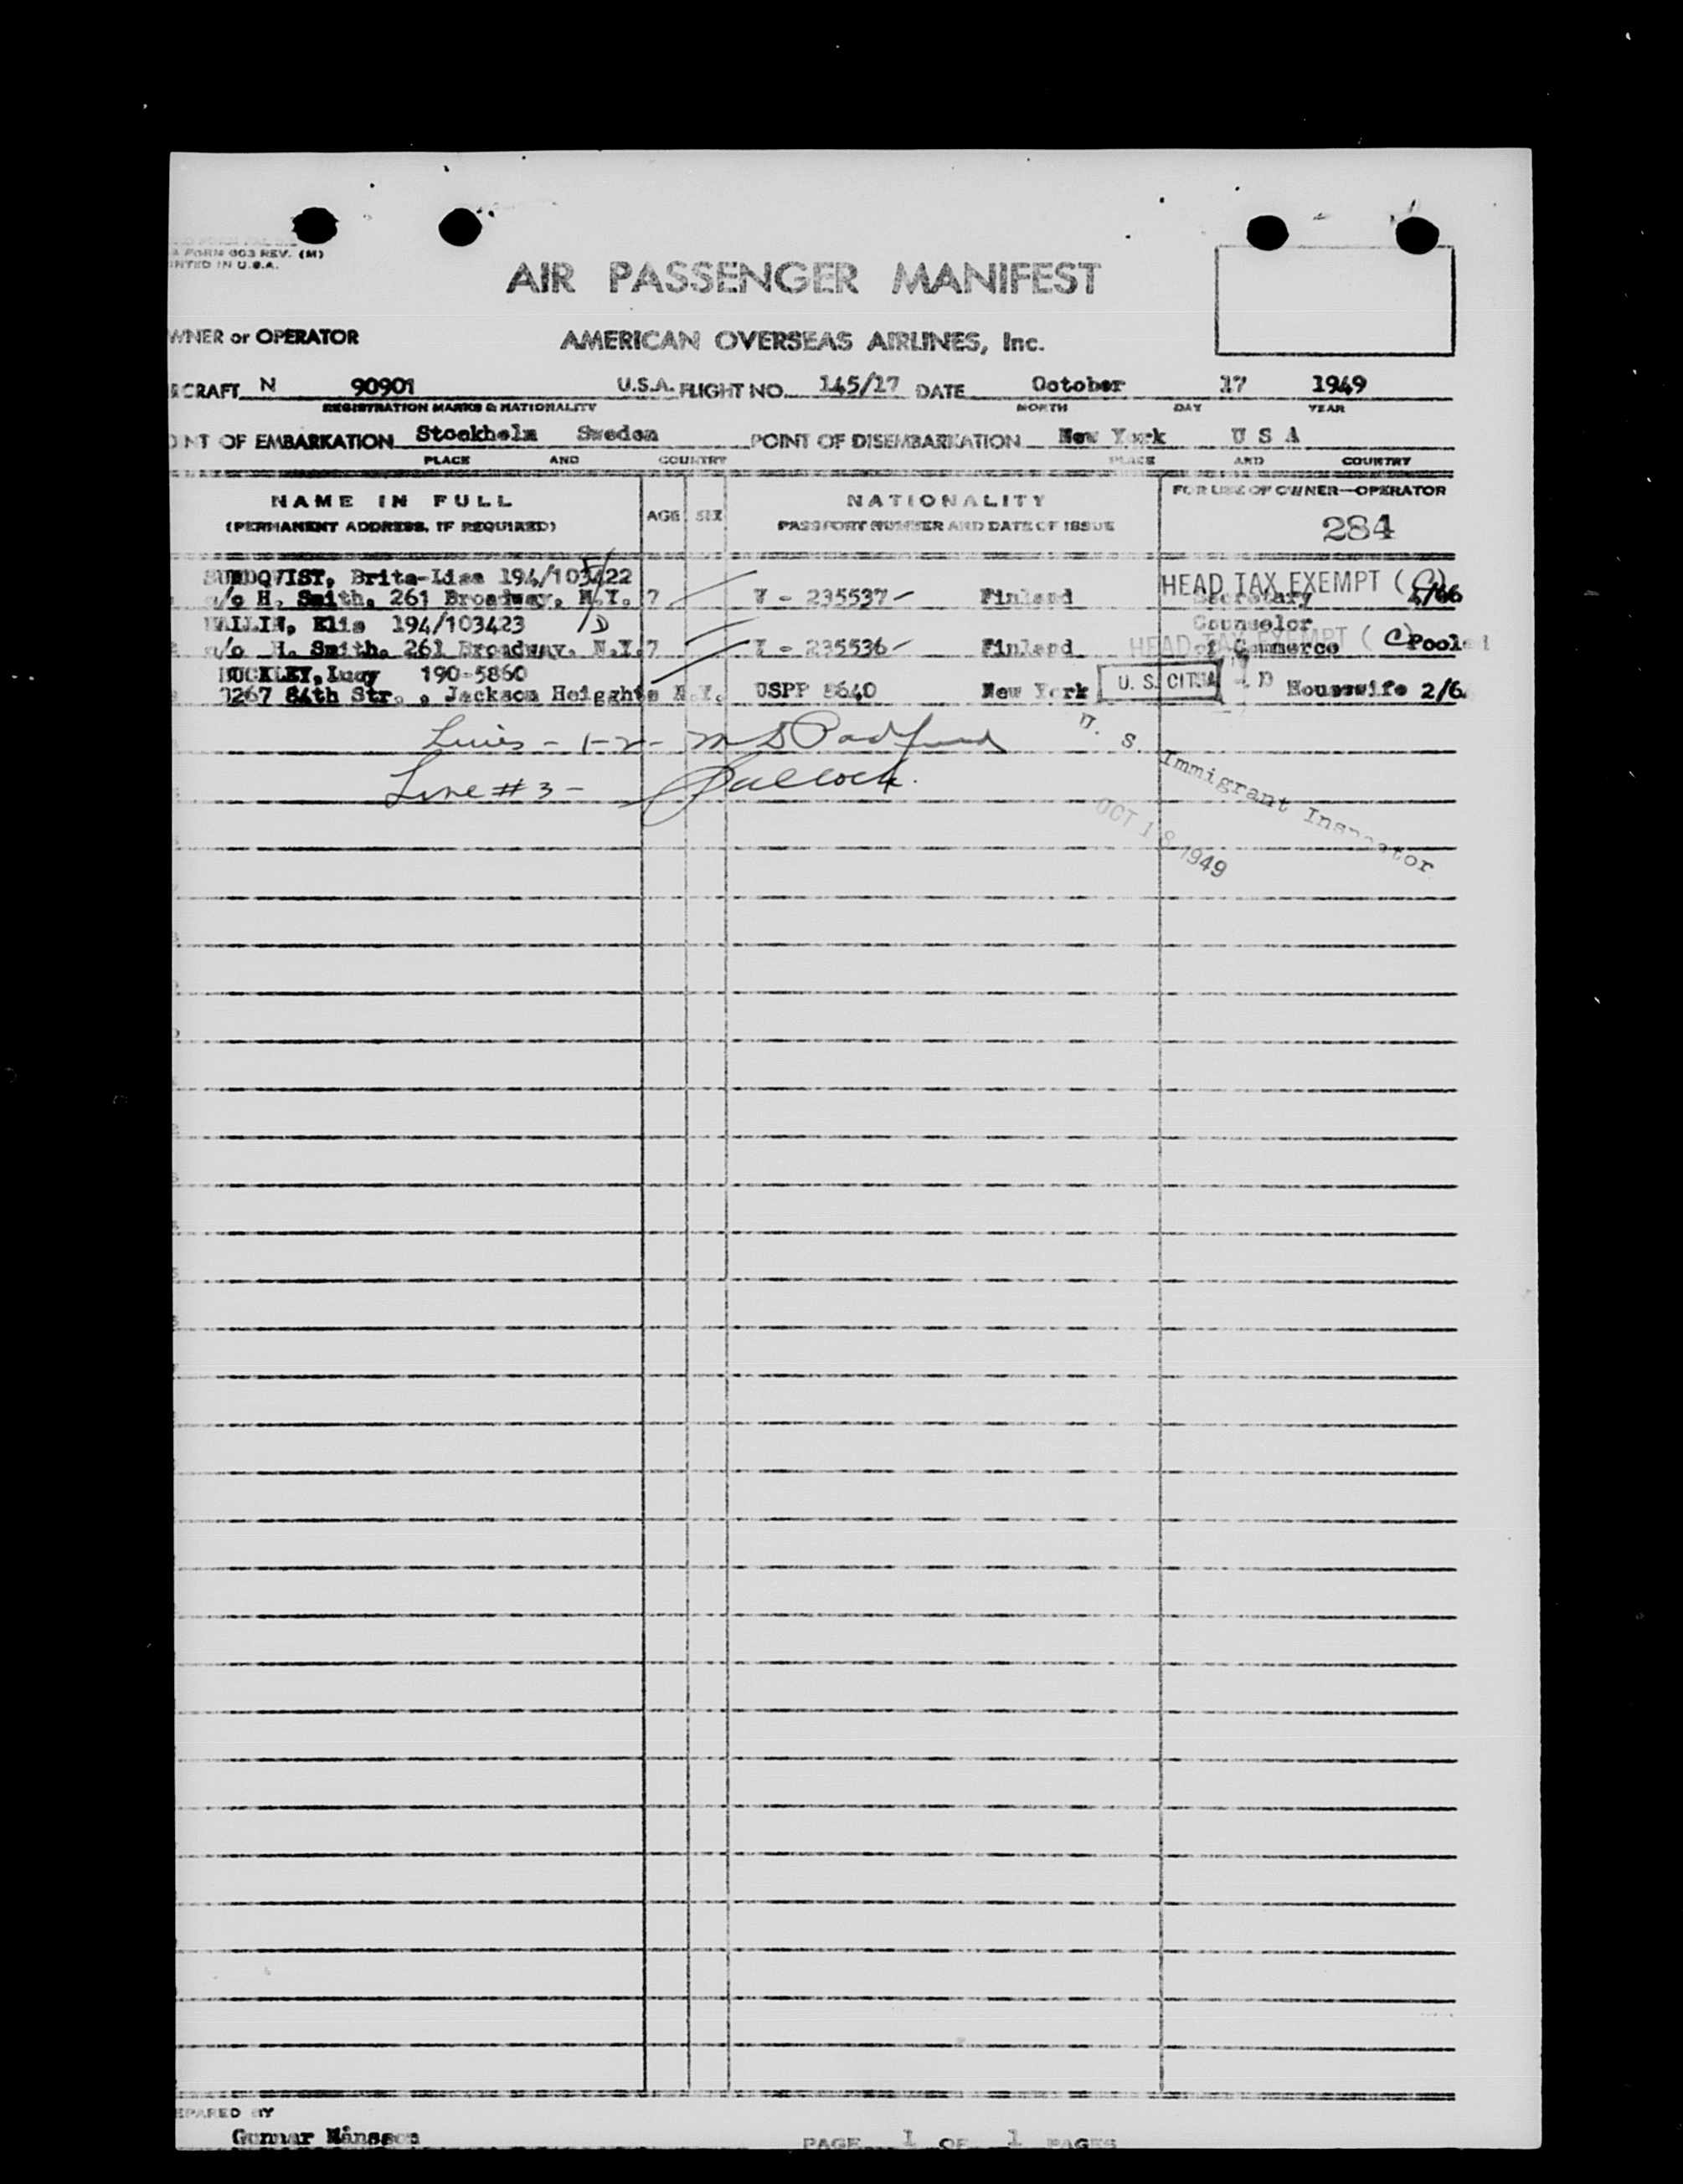 FORM 003 REV. (M)
NTED IN U.S.A.
AIR PASSENGER MANIFEST
WNER or OPERATOR AMERICAN OVERSEAS AIRLINES, Inc.
RCRAFT N 90901 U.S.A. FLIGHT NO. 145/17 DATE October 17 1949
REGISTRATION MARKS & NATIONALITY MONTH DAY YEAR
NT OF EMBARKATION Stockholm Sweden POINT OF DISEMBARKATION New York U S A
PLACE AND COUNTRY PLACE AND COUNTRY
NAME IN FULL AGE SEX NATIONALITY FOR USE OF OWNER—OPERATOR
(PERMANENT ADDRESS, IF REQUIRED) PASSPORT NUMBER AND DATE OF ISSUE 284
SUNDQVIST, Brita-Lisa 194/103422 HEAD TAX EXEMPT (C)
c/o H. Smith, 261 Broadway, N.Y. 7 V - 235537 - Finland Secretary
Elis 194/103423 Counselor
c/o H. Smith, 261 Broadway, N.Y. 7 V - 235536 - Finland HEAD TAX EXEMPT ( C of Commerce Pooled
BUCKLEY, Lucy 190-5860
3267 84th Str. , Jackson Heigghts N.Y. USPP 5640 New York U. S. CITSN Housewife 2/6
Lines - 1-2 - M S Padford
Line #3 - Bullock.
U. S. Immigrant Inspector
OCT 18 1949
EPARED BY
Gunnar Månsson PAGE 1 OF 1 PAGES